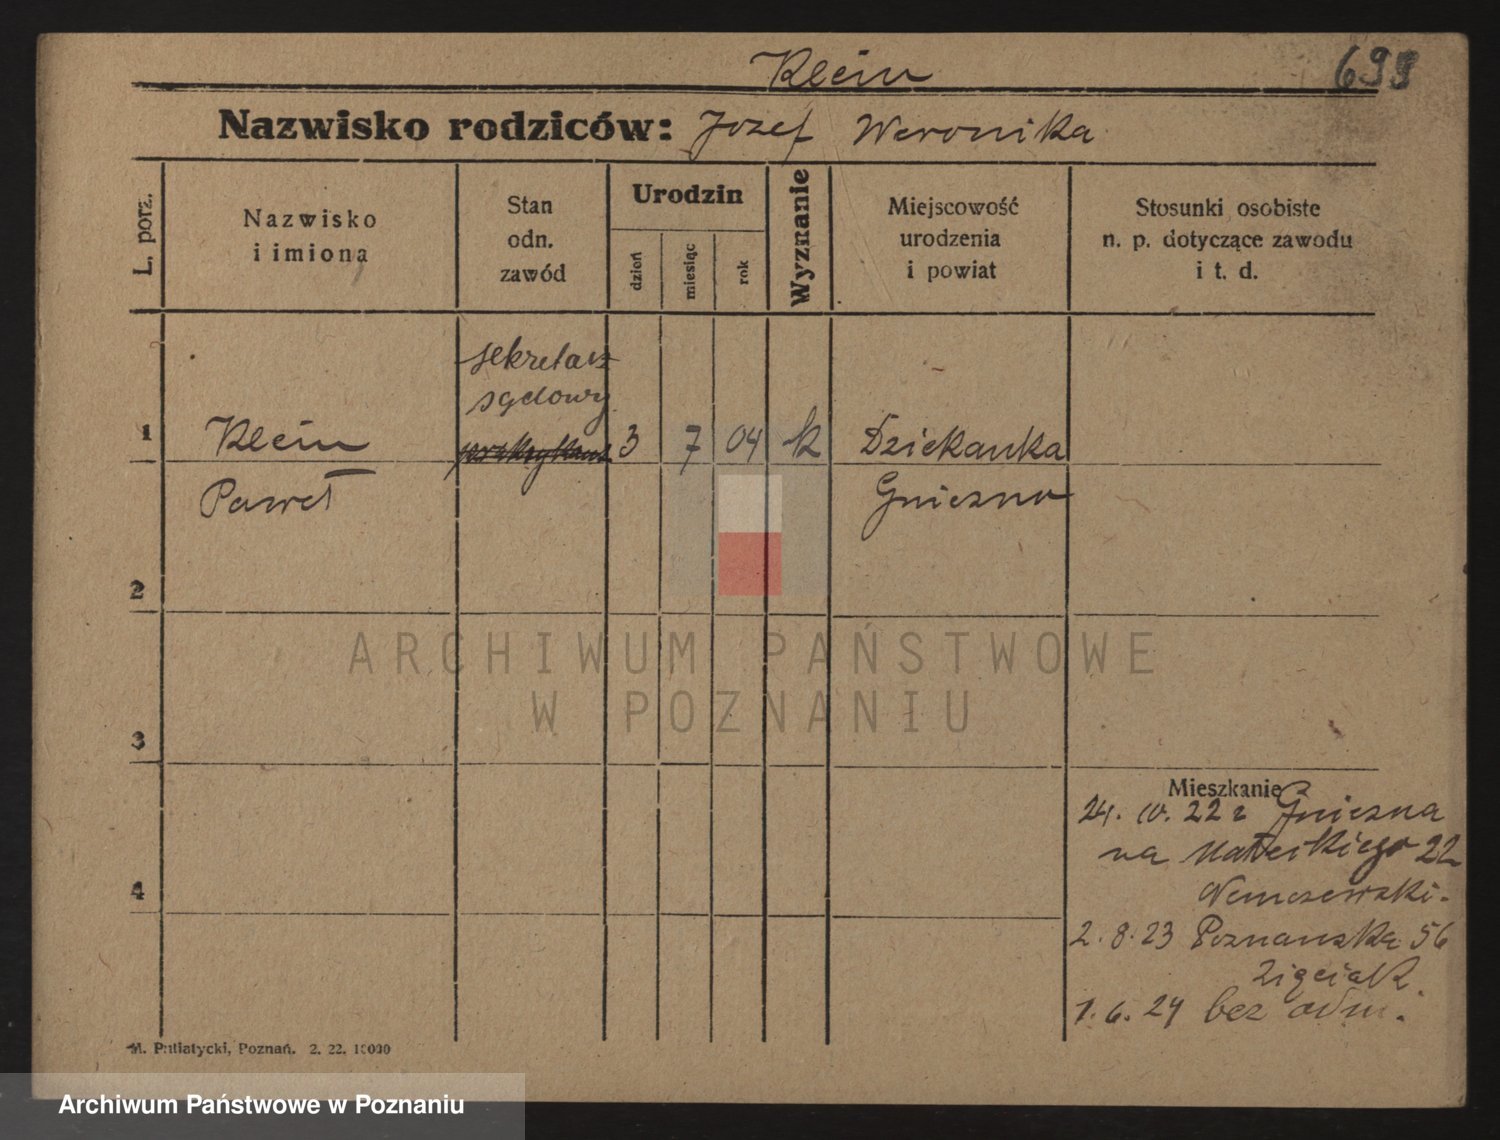 Klein
693
Nazwisko rodziców: Jozef Weronika
L. porz.
Nazwisko
i imiona
Stan
odn.
zawód
Urodzin
dzień
miesiąc
rok
Wyznanie
Miejscowość
urodzenia
i powiat
Stosunki osobiste
n. p. dotyczące zawodu
i t. d.
sekretarz
sądowy
1 Klein 3 7 04 k Dziekanka
Paweł Gniezno
2
ARCHIWUM PAŃSTWOWE
W POZNANIU
3
Mieszkanie
24. 10. 22 r Gniezna
na 22
4
2. 8. 23 Poznanska 56
1. 6. 24 bez odm.
M. Putiatycki, Poznań. 2. 22. 10000
Archiwum Państwowe w Poznaniu